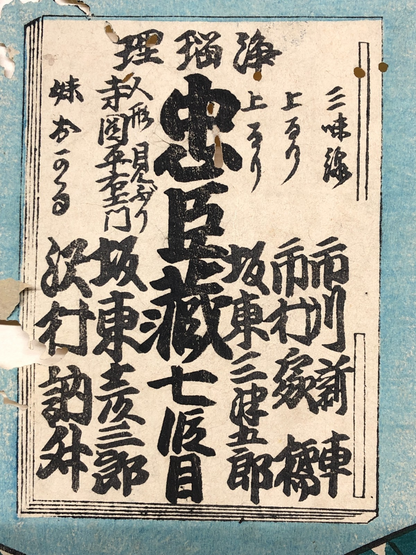 浄瑠理
三味線 市川新車
上るり 市村家橘
上るり 坂東三津五郎
忠臣蔵 七段目
人形見ぶり
寺岡平右衛門 坂東彦三郎
妹おかる 沢村訥升